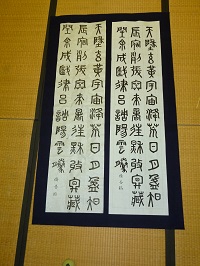 天地玄黃宇宙洪荒日月盈昃
辰宿列張寒來暑往秋收冬藏
閏余成歲律呂調陽雲騰
天地玄黃宇宙洪荒日月盈昃
辰宿列張寒來暑往秋收冬藏
閏余成歲律呂調陽雲騰